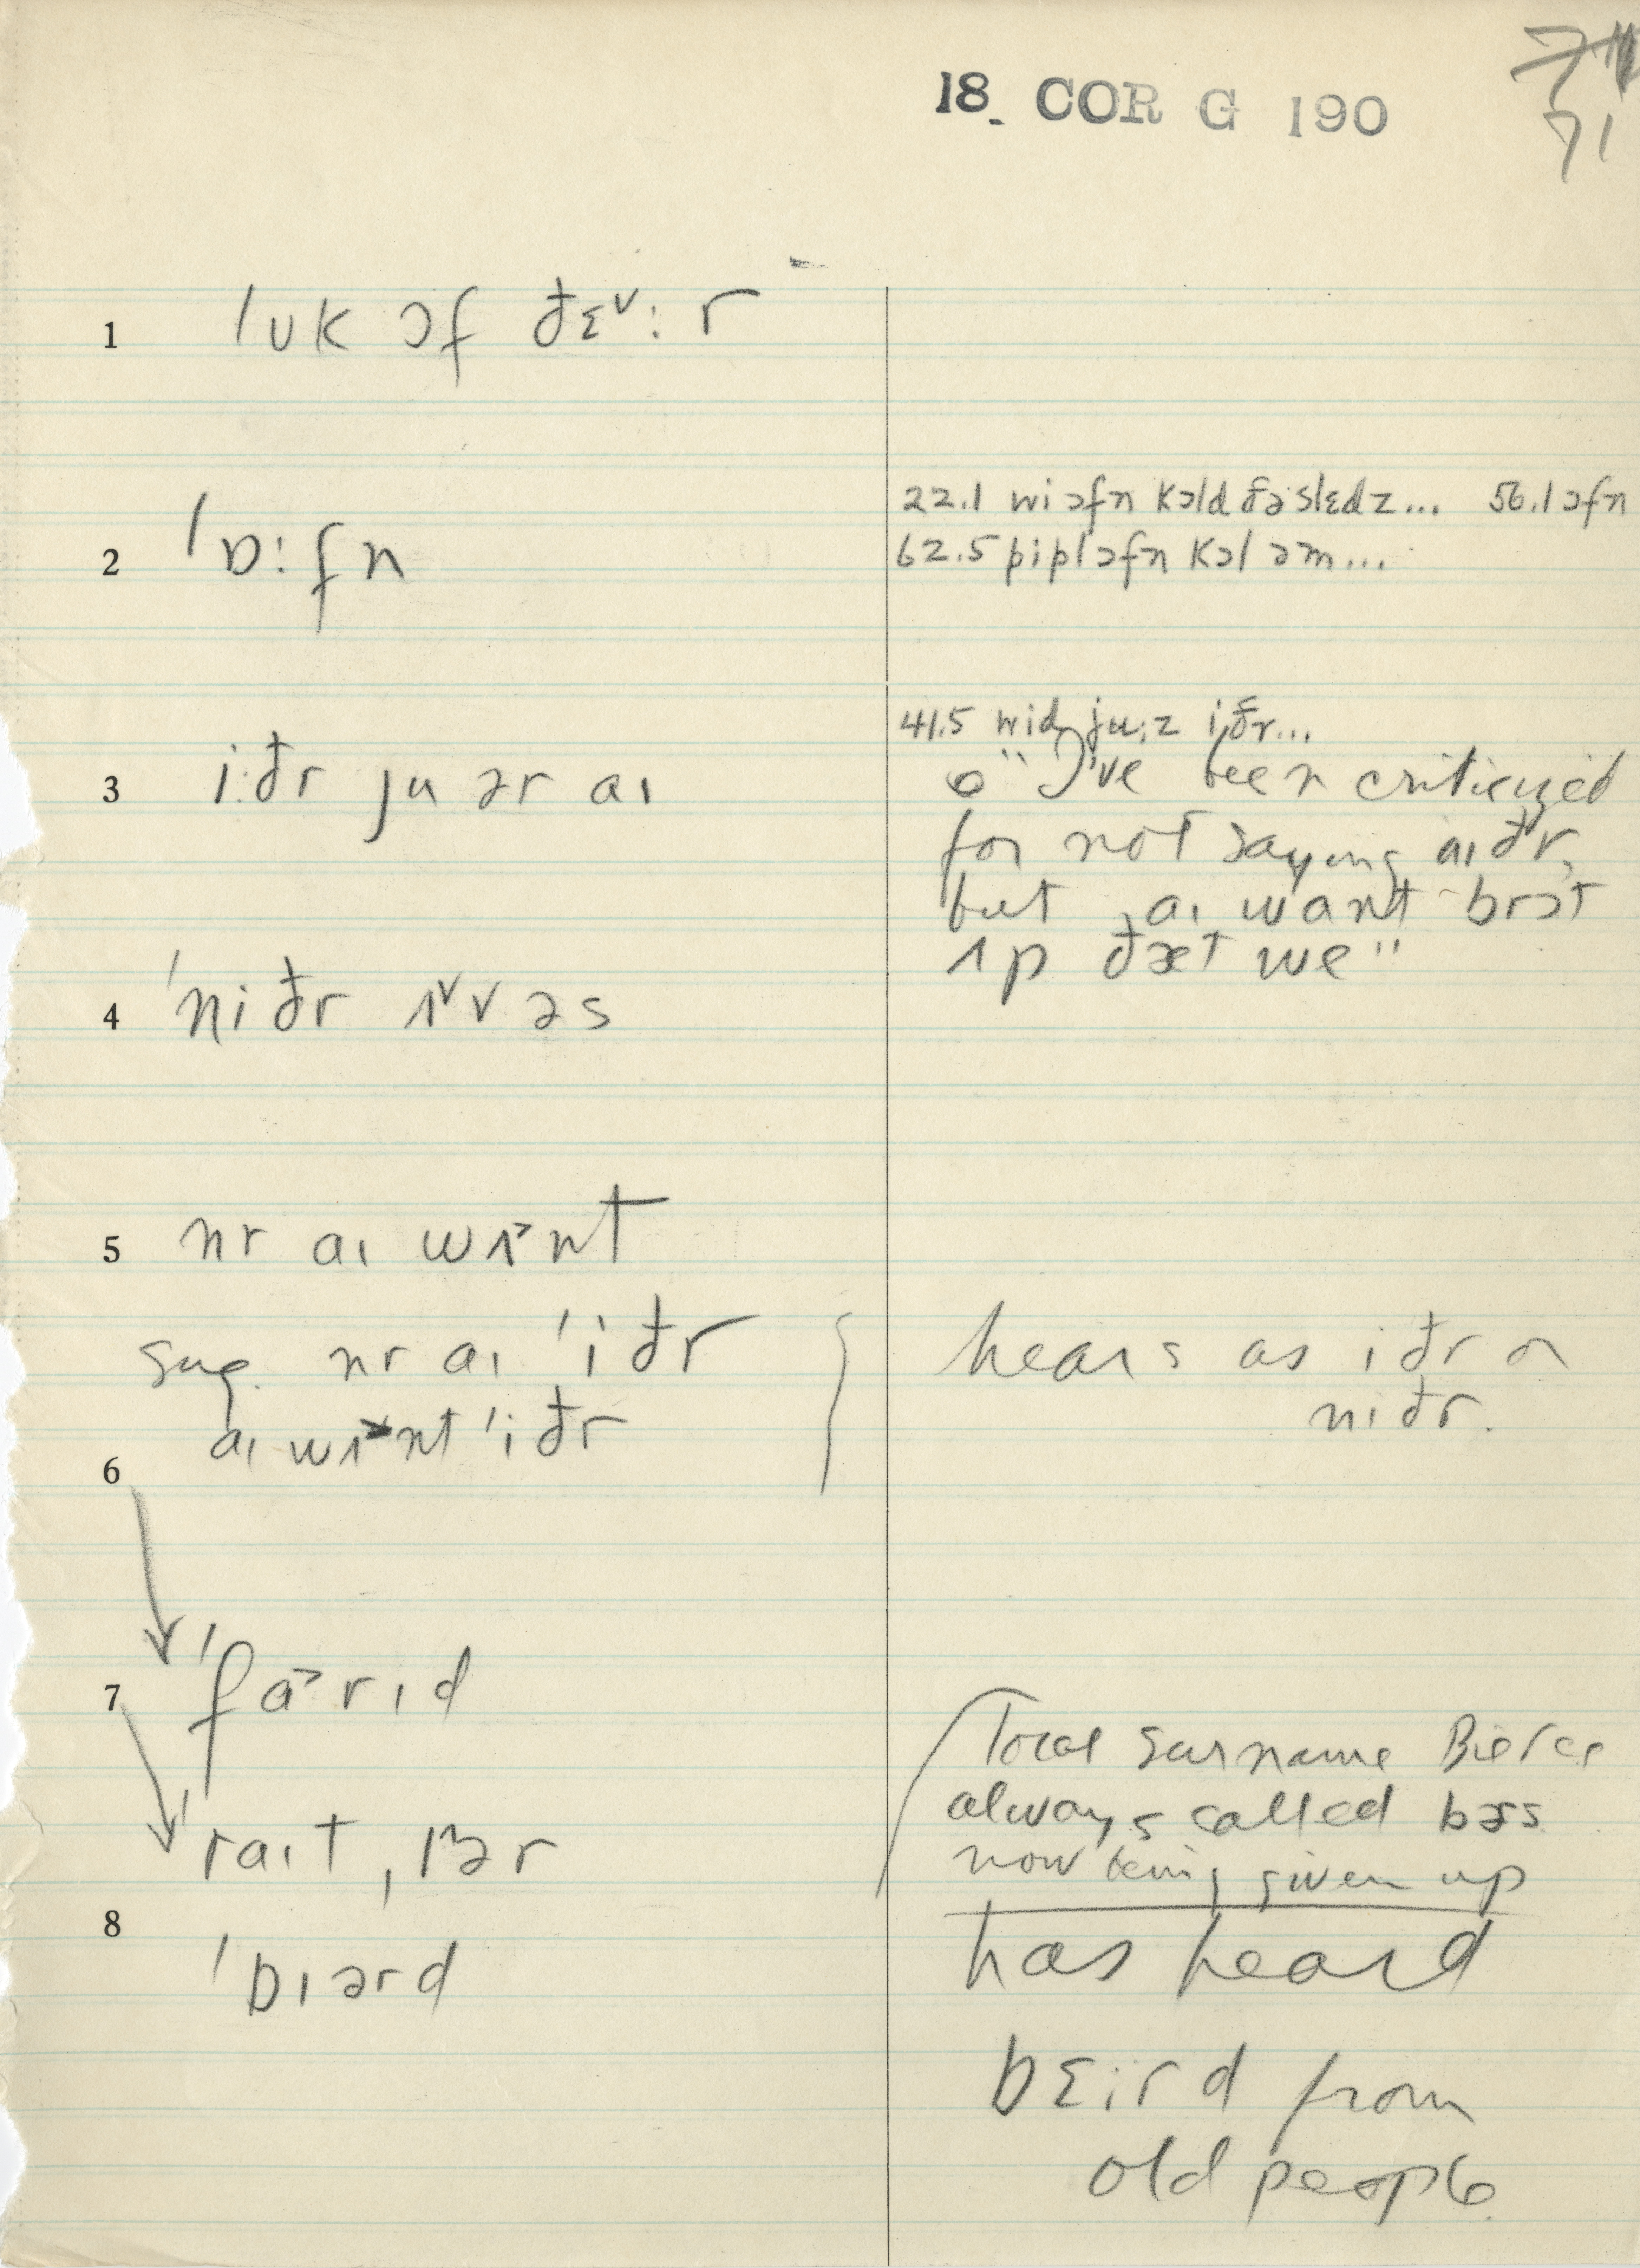 71
18. COR G 190
1 ˈʊk ɔf ðɛ˅:r
2 ˈɒ:fn
22.1 wi ɔfn kɔld ðə slɛdz... 56.1 ɔfn
62.5 pipl ɔfn kɔl əm...
3 i:ðr ju ər aɪ
41.5 wid ju:z iðr...
"I've been criticized
for not saying aɪðr,
but aɪ wɑnt brɔt
ʌp ðæt we"
4 ˈniðr ʌ˅v əs
5 nr aɪ wʌ˃nt
sug. nr aɪ ˈiðr
aɪ wʌ˃nt ˈiðr
hears as iðr or
niðr.
6
7 ˈfɑ˃rɪd
ˈraɪt ˌɪər
8
ˈbɪərd
Local surname Bierce
always called bɜs
now being given up
has heard
bɛird from
old people.